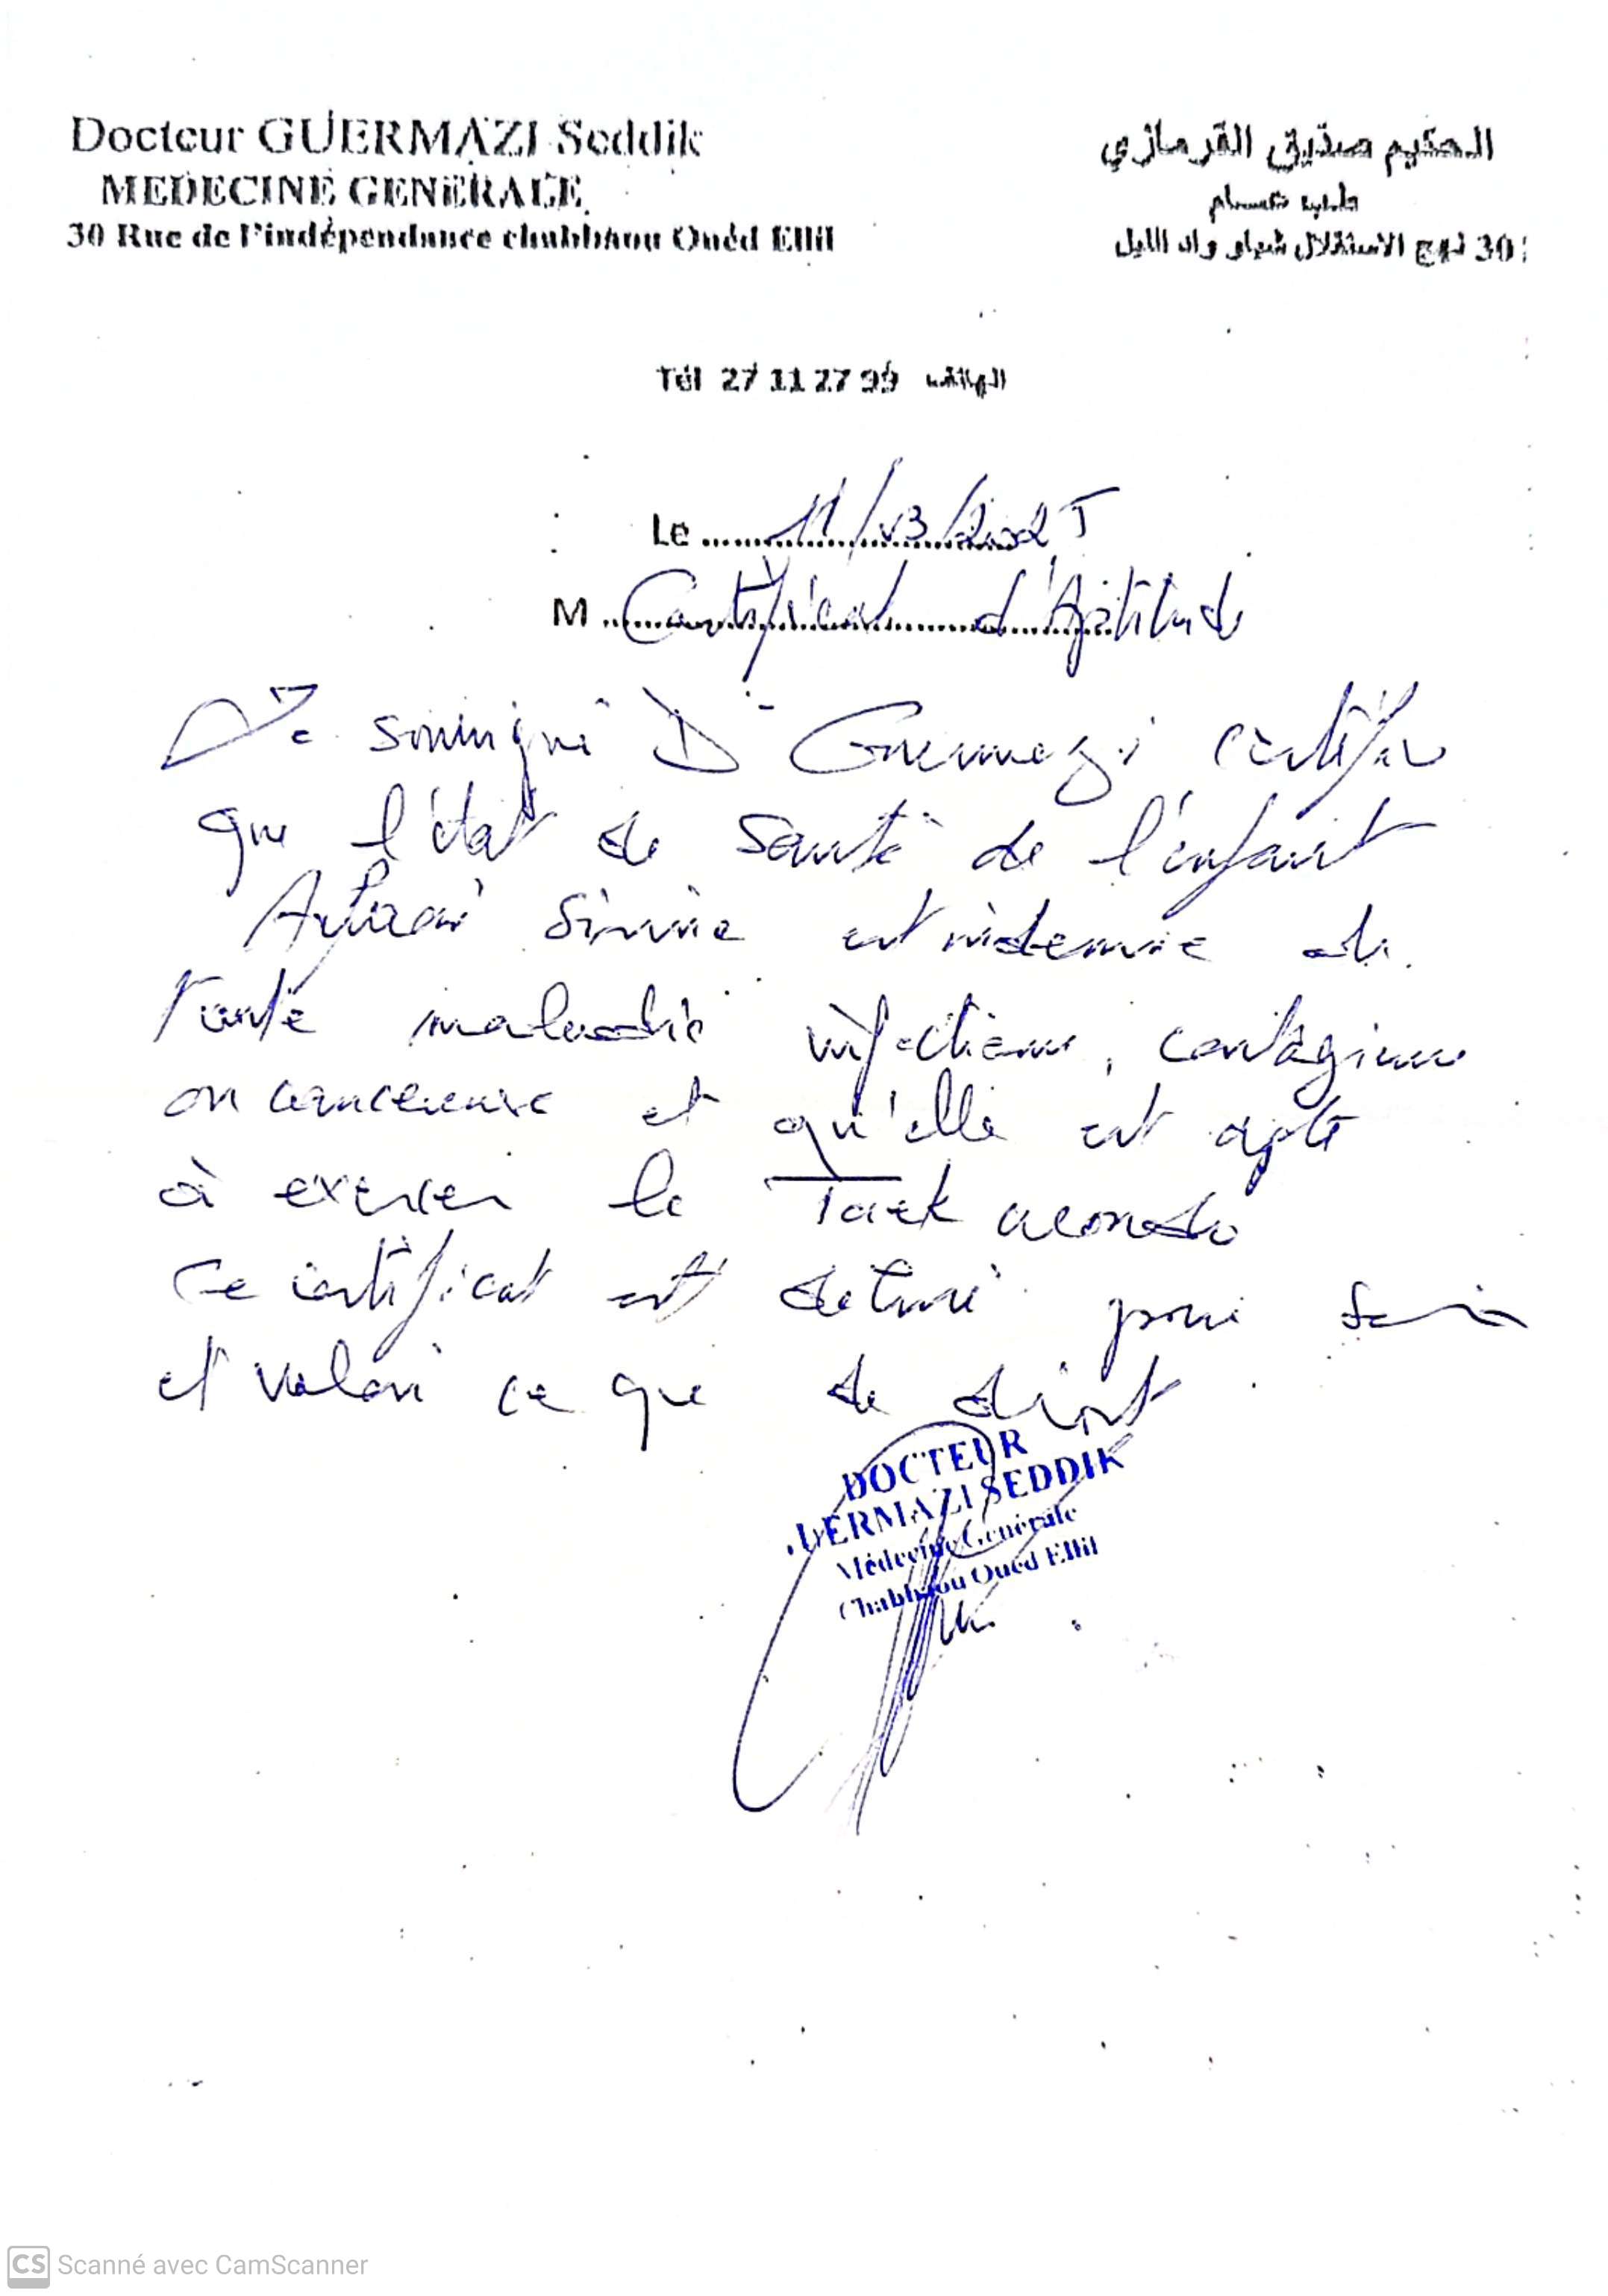 Docteur GUERMAZI Seddik
MEDECINE GENERALE
30 Rue de l'indépendance chabbaou Ouéd Ellil
الحكيم صديق القرمازي
طبيب عام
30 نهج الاستقلال شباو واد الليل
Tél 27 11 27 99 الهاتف
Le 11/03/2025
M Certificat d'Aptitude
Je soussigné Dr Guermazi certifie
que l'état de santé de l'enfant
est indemne de
toute maladie infectieuse, contagieuse
ou cancereuse et qu'elle est apte
à exercer le Taekwondo
Ce certificat est délivré pour servir
et valoir ce que de droit
DOCTEUR
UERMAZI SEDDIK
Médecine Générale
Chabbaou Oued Ellil
CS Scanné avec CamScanner